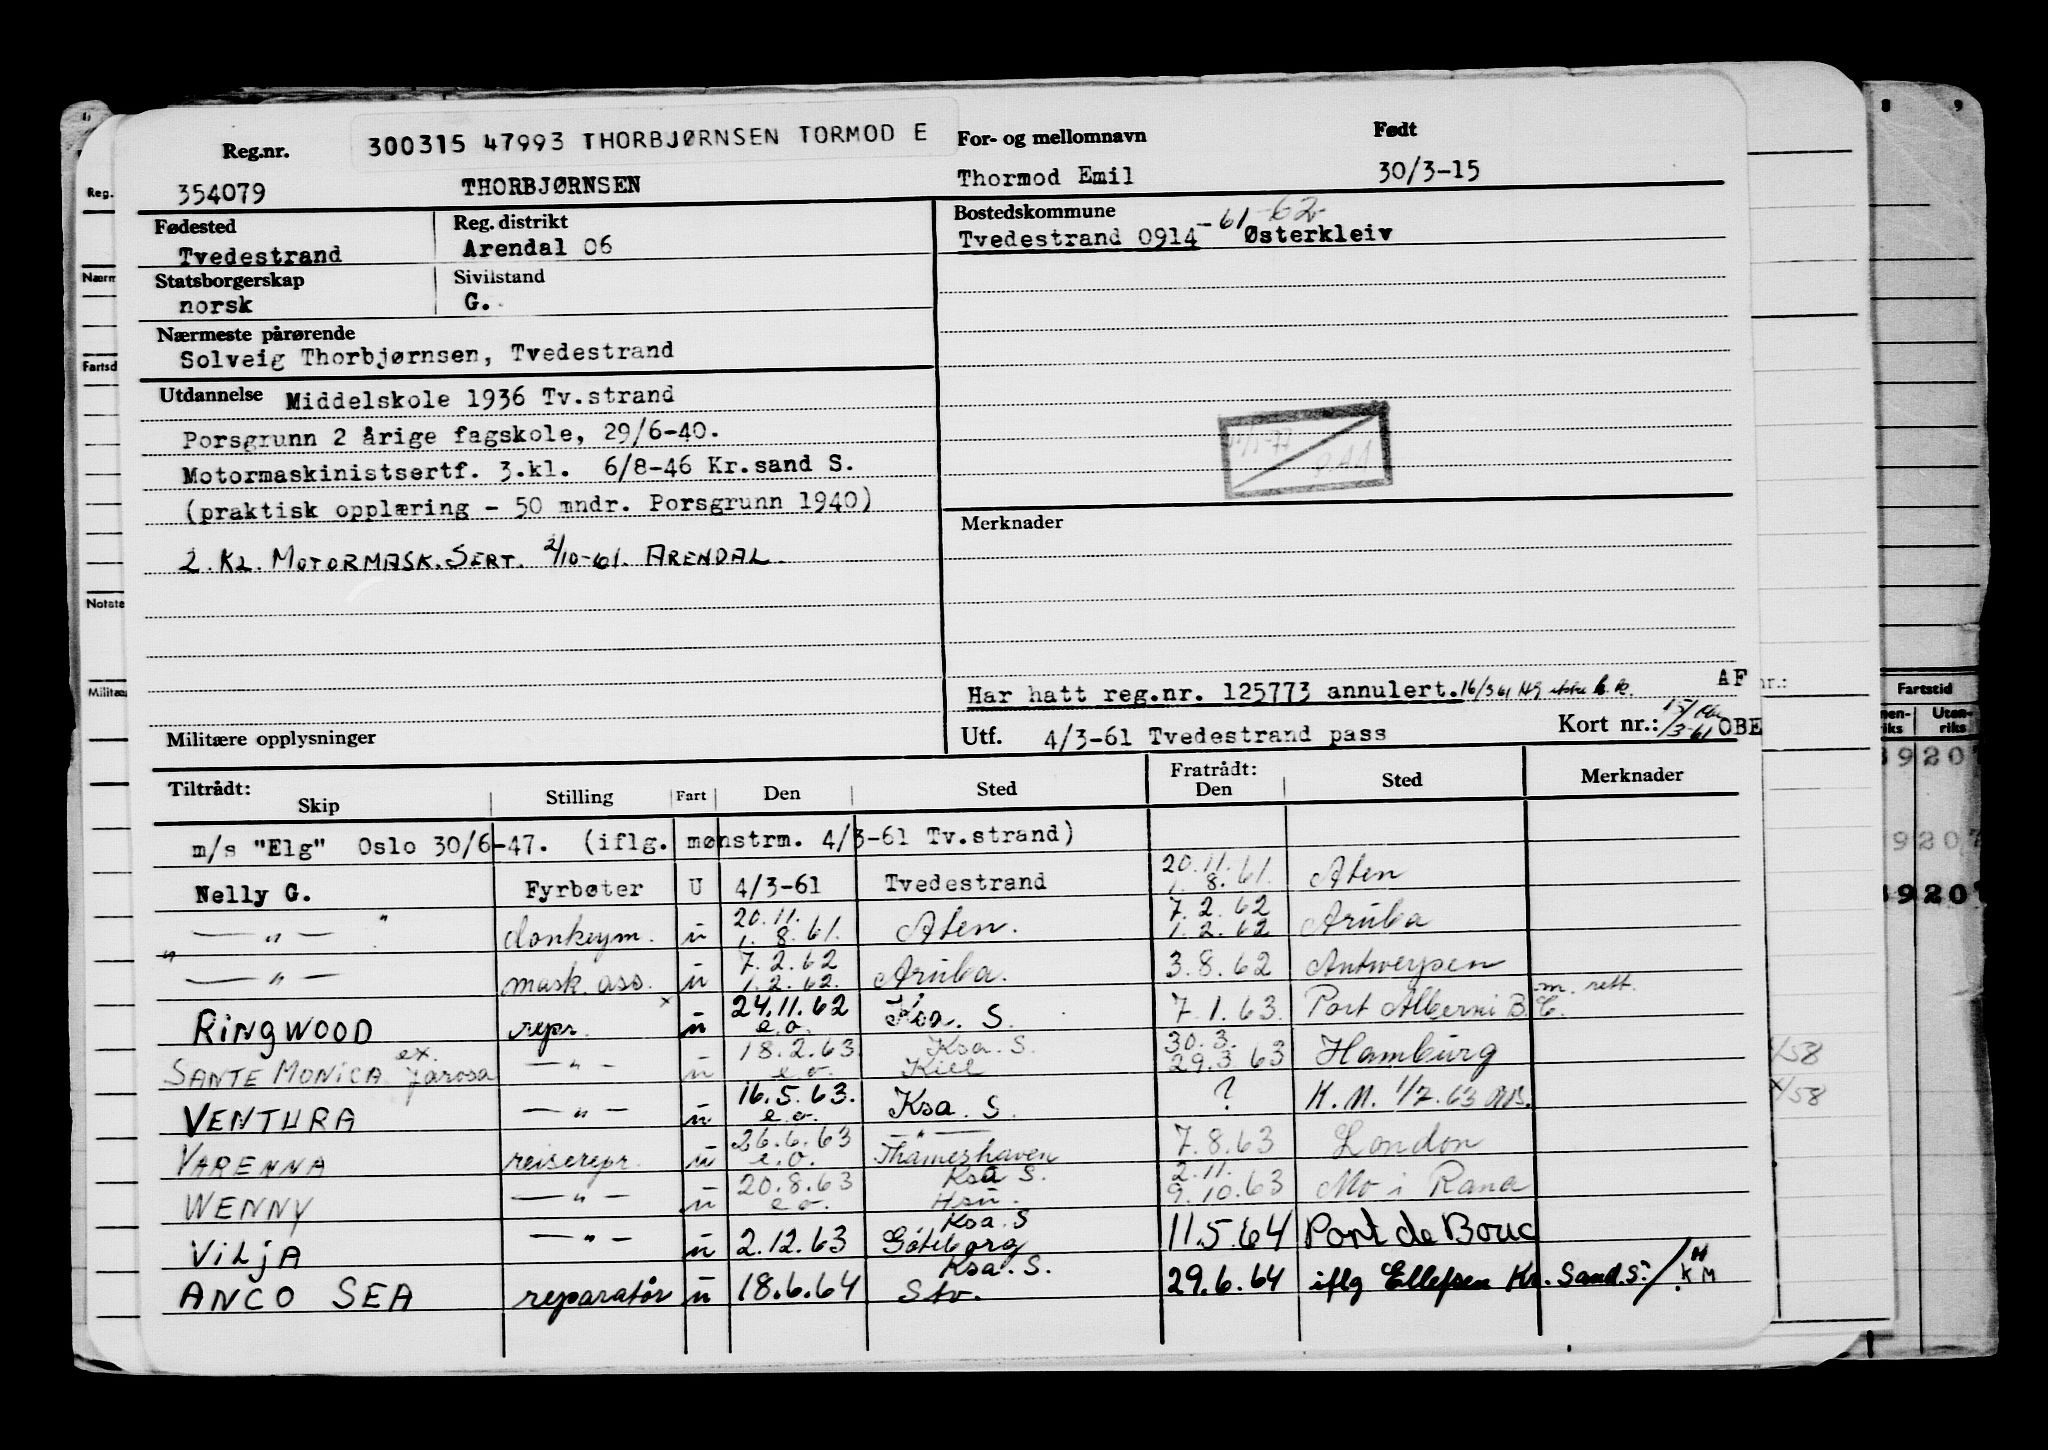 300315 47993 THORBJØRNSEN TORMOD E
Reg.nr. For- og mellomnavn Født
354079 THORBJØRNSEN Thormod Emil 30/3-15
Fødested Reg. distrikt Bostedskommune
Tvedestrand Arendal 06 Tvedestrand 0914 -61 -62 Østerkleiv
Statsborgerskap Sivilstand
norsk G.
Nærmeste pårørende
Solveig Thorbjørnsen, Tvedestrand
Utdannelse Middelskole 1936 Tv.strand
Porsgrunn 2 årige fagskole, 29/6-40.
Motormaskinistsertf. 3.kl. 6/8-46 Kr.sand S.
(praktisk opplæring - 50 mndr. Porsgrunn 1940)
2. KL. MOTORMASK. SERT. 2/10-61. ARENDAL.
Merknader
Har hatt reg.nr. 125773 annulert. 16/3 61 AF
Militære opplysninger
Utf. 4/3-61 Tvedestrand pass Kort nr.: 15/3-61 OBE
Tiltrådt: Fratrådt:
Skip Stilling Fart Den Sted Den Sted Merknader
m/s "Elg" Oslo 30/6-47. (iflg. mønstrm. 4/3-61 Tv.strand)
Nelly G. Fyrbøter U 4/3-61 Tvedestrand 20.11. 1.8.61. Aten
— " — " donkeym. u 20.11. 1.8.61. Aten. 7.2.62 1.2.62 Aruba
" — " — mask. ass. u 7.2.62 1.2.62. Aruba. 3.8.62 Antwerpen
RINGWOOD repr. x u 24.11.62 e.o. Ksa. S. 7.1.63. Port Alberni B.C. m. rett.
SANTE MONICA ex. Jarosa — " — u 18.2.63. e.o. Ksa. S. Kiel 30.3. 29.3.63 Hamburg
VENTURA — " — u 16.5.63. e.o. Ksa. S. ? K.M. 1/7.63
VARENNA reiserepr. u 26.6.63 e.o. — " — Thameshaven 7.8.63 London
WENNY — " — u 20.8.63 e.o. Ksa S. Hsu. 2.11. 9.10.63 Mo i Rana
VILJA — " — u 2.12.63 Ksa. S Göteborg 11.5.64 Port de Bouc
ANCO SEA reparatør u 18.6.64 Ksa. S. Stv. 29.6.64 iflg Ellefsen Kr. Sand. S. / H KM
Reg.
Nærm
Fartsd
Notate
Militæ
8 9
nr.:
Fartstid
nen-riks Uten-riks
9207
9207
9207
/58
/58